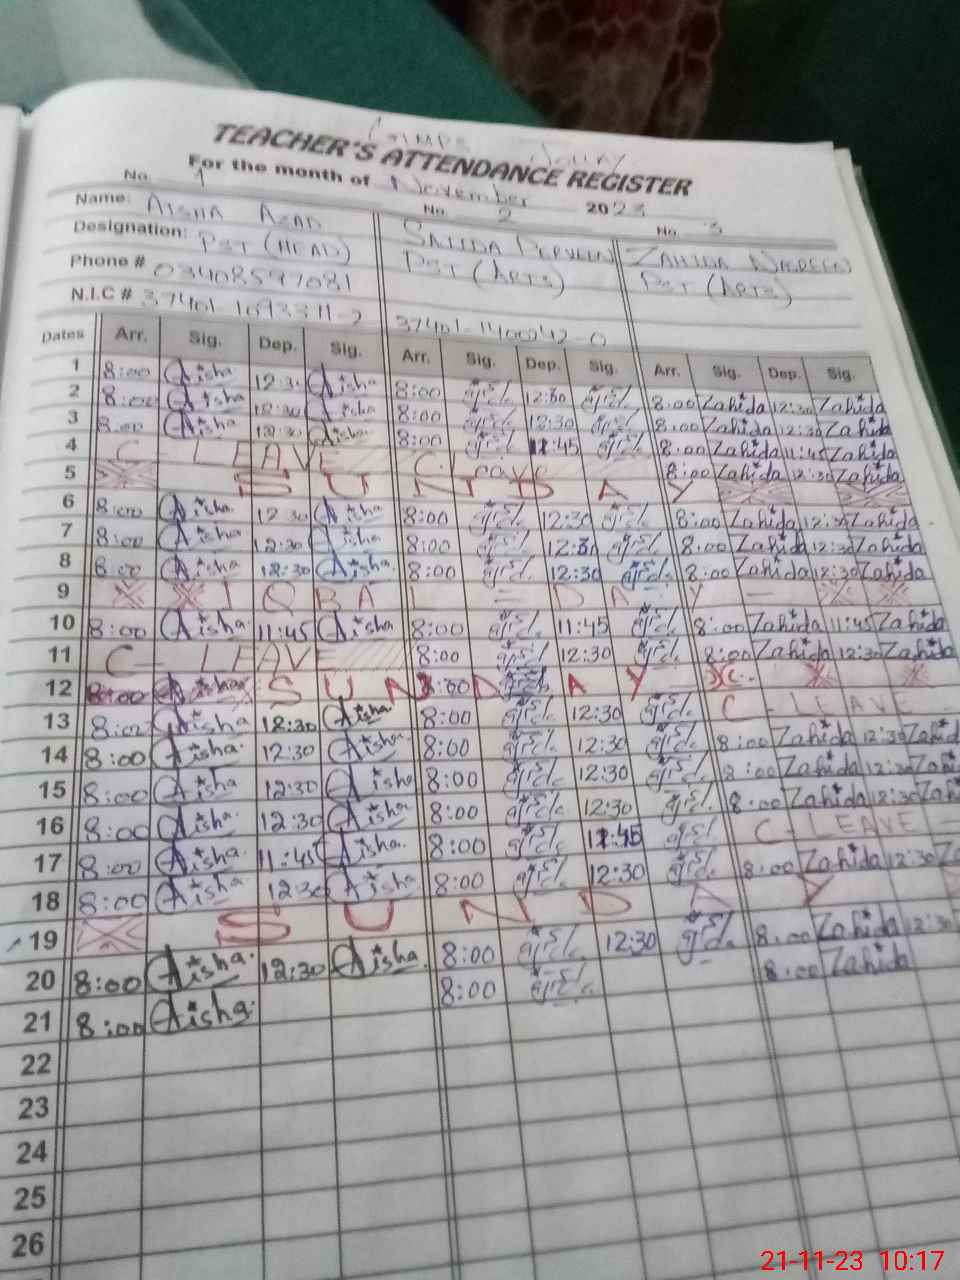 TEACHER'S ATTENDANCE REGISTER
For the month of November 2023
No. 1 No. 2 No. 3
Name: AISHA AZAD SAIIDA PERVEEN ZAHIDA NASREEN
Designation: PST (HEAD) PST (ARTS) PST (ARTS)
Phone # 03408597081
N.I.C # 37401-1400242-0
Dates Arr. Sig. Dep. Sig. Arr. Sig. Dep. Sig. Arr. Sig. Dep. Sig.
1 8:00 Aisha 12:30 Aisha 8:00 12:30 8:00 Zahida 12:30 Zahida
2 8:00 Aisha 12:30 Aisha 8:00 12:30 8:00 Zahida 12:30 Zahida
3 8:00 Aisha 12:30 Aisha 8:00 11:45 8:00 Zahida 11:45 Zahida
4 C - LEAVE C. Leave 8:00 Zahida 12:30 Zahida
5 SUNDAY
6 8:00 Aisha 12:30 Aisha 8:00 12:30 8:00 Zahida 12:30 Zahida
7 8:00 Aisha 12:30 Aisha 8:00 12:30 8:00 Zahida 12:30 Zahida
8 8:00 Aisha 12:30 Aisha 8:00 12:30 8:00 Zahida 12:30 Zahida
9 IQBAL - DAY -
10 8:00 Aisha 11:45 Aisha 8:00 11:45 8:00 Zahida 11:45 Zahida
11 C - LEAVE 8:00 12:30 8:00 Zahida 12:30 Zahida
12 8:00 SUNDAY
13 8:00 Aisha 12:30 Aisha 8:00 12:30 C - LEAVE -
14 8:00 Aisha 12:30 Aisha 8:00 12:30 8:00 Zahida 12:30 Zahid
15 8:00 Aisha 12:30 Aisha 8:00 12:30 8:00 Zahida 12:30 Zahi
16 8:00 Aisha 12:30 Aisha 8:00 12:30 8:00 Zahida 12:30 Zah
17 8:00 Aisha 11:45 Aisha 8:00 11:45 C - LEAVE -
18 8:00 Aisha 12:30 Aisha 8:00 12:30 8:00 Zahida 12:30 Za
19 SUNDAY
20 8:00 Aisha 12:30 Aisha 8:00 12:30 8:00 Zahida 12:30
21 8:00 Aisha 8:00 8:00 Zahida
22
23
24
25
26
21-11-23 10:17